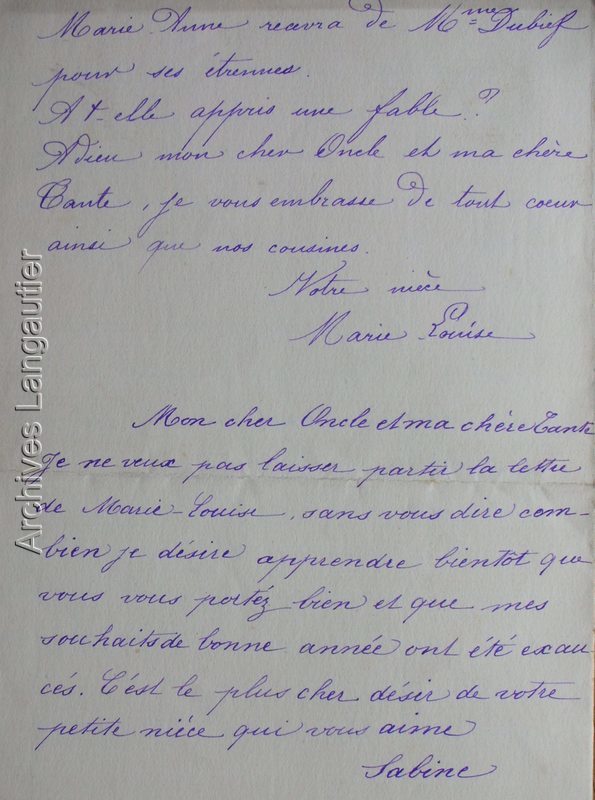 Marie Anne recevra de Mme Dubief
pour ses étrennes.
A t-elle appris une fable ?
Adieu mon cher Oncle et ma chère
Tante, je vous embrasse de tout coeur
ainsi que nos cousines.
Votre nièce
Marie Louise
Mon cher Oncle et ma chère Tante
Je ne veux pas laisser partir la lettre
de Marie-Louise, sans vous dire com-
bien je désire apprendre bientôt que
vous vous portéz bien et que mes
souhaits de bonne année ont été exau-
cés. C'est le plus cher désir de votre
petite nièce qui vous aime
Sabine
Archives Langautier